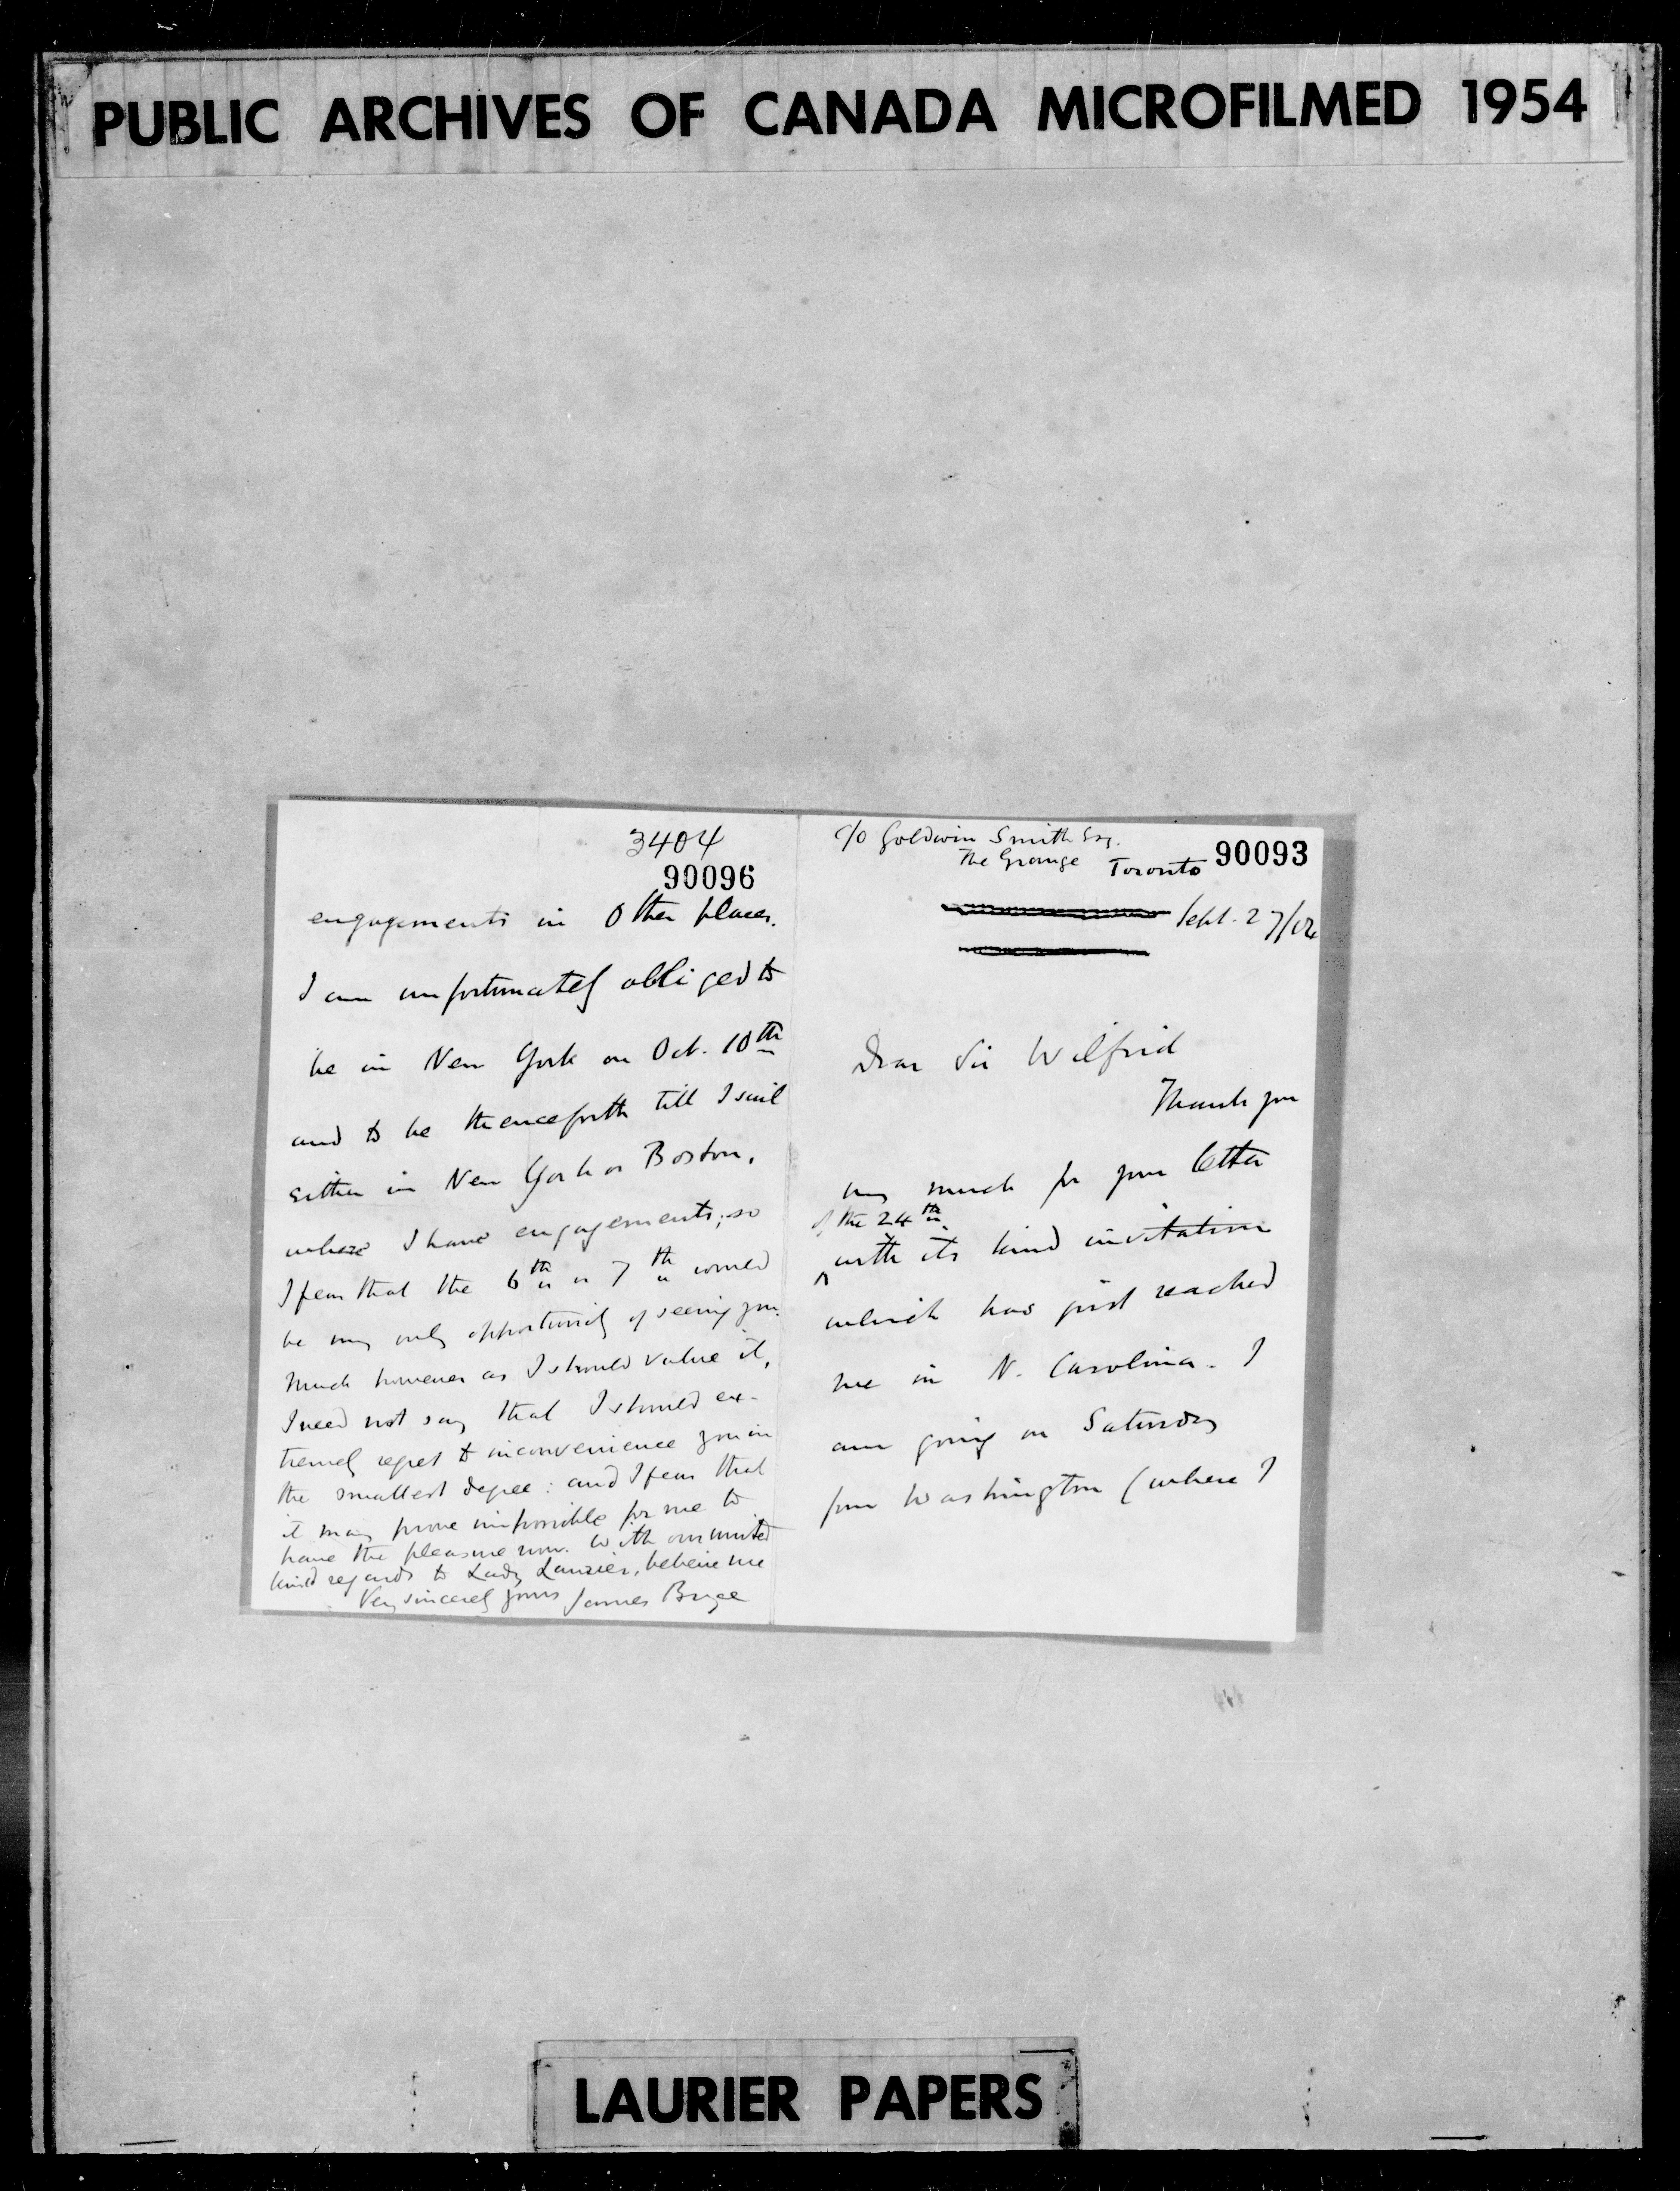 PUBLIC ARCHIVES OF CANADA MICROFILMED 1954
3404
90096
engagements in other places.
I am unfortunately obliged to
be in New York on Oct. 10th
and to be thenceforth till I sail
either in New York or Boston,
where I have engagements; so
I fear that the 6th or 7th would
be my only opportunity of seeing you.
Much however as I should value it,
I need not say that I should ex-
tremely regret to inconvenience you in
the smallest degree: and I fear that
it may prove impossible for me to
have the pleasure now. With our united
kind regards to Lady Laurier, believe me
Very sincerely yours James Bryce
c/o Goldwin Smith Esq.
The Grange Toronto
90093
Sept. 27/04
Dear Sir Wilfrid
Thank you
very much for your letter
of the 24th
with its kind invitation
which has just reached
me in N. Carolina. I
am going on Saturday
from Washington (where I
LAURIER PAPERS